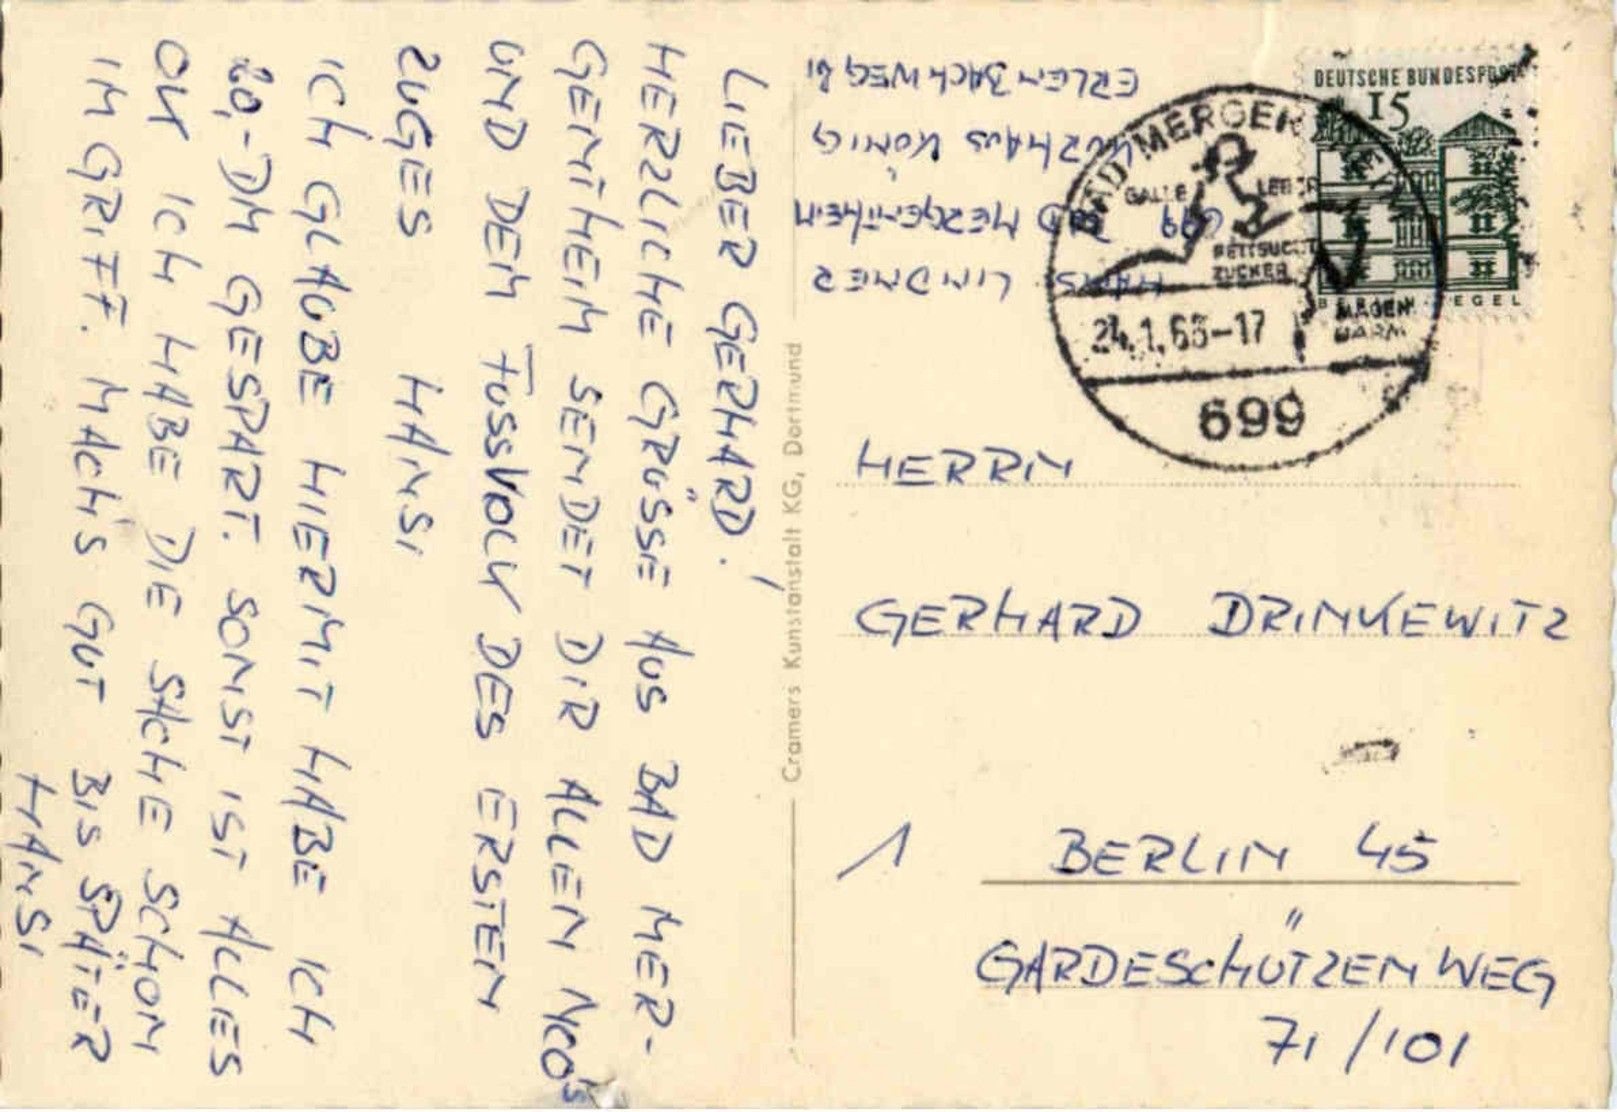 LIEBER GERHARD!
HERZLICHE GRÜSSE AUS BAD MER-
GENTHEIM SENDET DIR ALLEN NCO'S
UND DEM FUSSVOLK DES ERSTEN
ZUGES HANSI
ICH GLAUBE HIERMIT HABE ICH
20,-DM GESPART. SONST IST ALLES
OK ICH HABE DIE SACHE SCHON
IM GRIFF. MACH'S GUT BIS SPÄTER
HANSI
Cramers Kunstanstalt KG, Dortmund
HANS LINDNER
699 BAD MERGENTHEIM
KURHAUS KÖNIG
ERLENBACHWEG 21
DEUTSCHE BUNDESPOST
15
BERLIN-TEGEL
BAD MERGENTHEIM
GALLE LEBER
FETTSUCHT
ZUCKER
MAGEN
DARM
24.1.66-17
699
HERRN
GERHARD DRINKEWITZ
1 BERLIN 45
GARDESCHÜTZENWEG
71/101